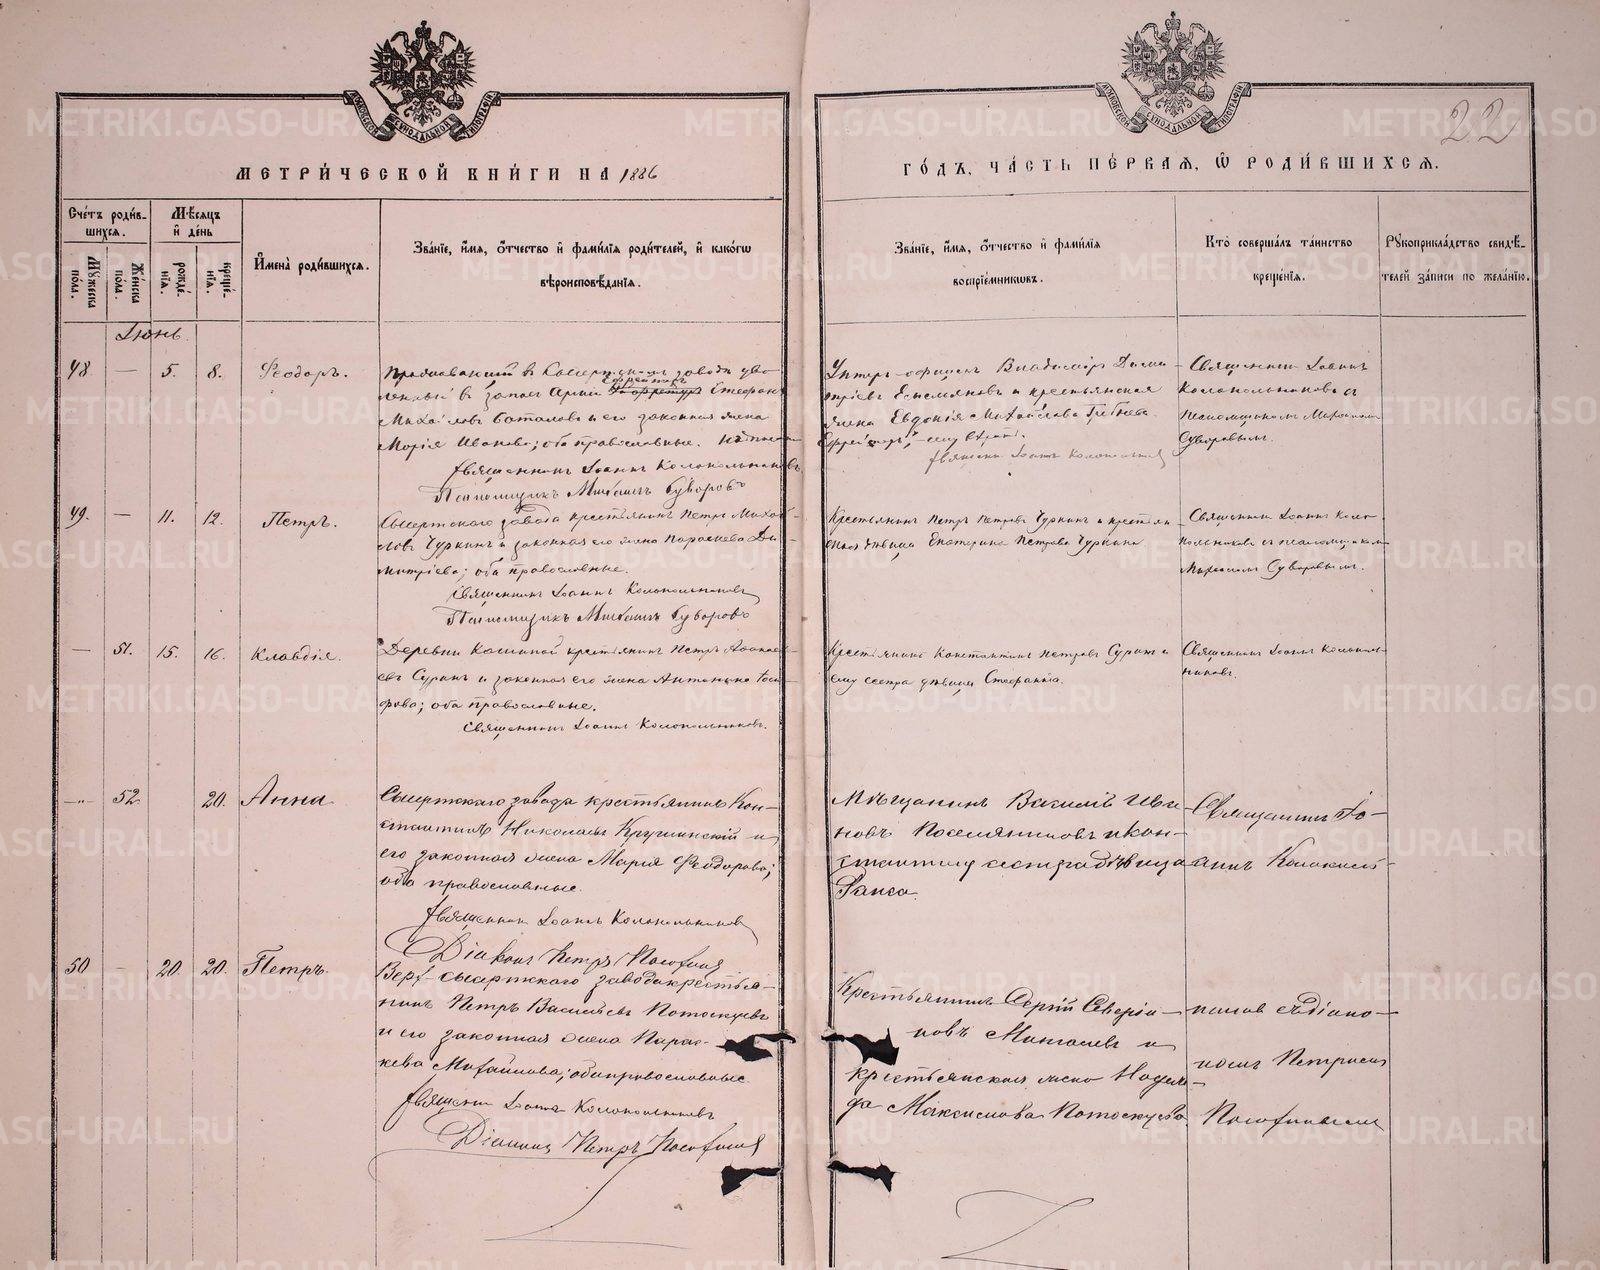 МЕТРИ́ЧЕСКОЙ КНИ́ГИ НА 1886
ГО́ДЪ, ЧА́СТЬ ПЕ́РВАЯ, Ѿ РОДИ́ВШИХСЯ.
22
Сче́тъ роди́в-
шихся.
Мꙋ́жеска по́ла.
Же́нска по́ла.
Мѣ́сяцъ
и҆ де́нь
рожде́-
нїѧ.
креще́-
нїѧ.
И҆мена̀ роди́вшихся.
Зва́нїе, и҆́мѧ, ѻ҆́тчество и҆ фами́лїѧ роди́телей, и҆ како́гѡ
вѣроисповѣ́данїѧ.
Зва́нїе, и҆́мѧ, ѻ҆́тчество и҆ фами́лїѧ
воспрїе́мникѡвъ.
Кто̀ соверша́лъ та́инство
креще́нїѧ.
Рꙋкоприкла́дство свидѣ́-
телей за́писи по жела́нїю.
Іюнь
48
—
5.
8.
Ѳеодоръ.
въ Сысертскомъ заводѣ уво-
ленный в запас Арміи Ефрейторъ Стефанъ
Михайловъ Баталовъ и его законная жена
Марія Иванова; оба православные.
Священникъ Іоаннъ Колокольниковъ
Псаломщикъ Михаилъ Суворовъ
Унтеръ-офицеръ Владиміръ Дими-
тріевъ и крестьянская
жена Евдокія Михайлова
Ефрейторъ,
Священ. Іоаннъ Колокольниковъ
Священникъ Іоаннъ
Колокольниковъ съ
псаломщикомъ Михаиломъ
Суворовымъ.
49.
—
11.
12.
Петръ.
Сысертскаго завода крестьянинъ Петръ Михай-
ловъ Чуркинъ и законная его жена Параскева Ди-
митріева; оба православные.
Священникъ Іоаннъ Колокольниковъ
Псаломщикъ Михаилъ Суворовъ
Крестьянинъ Петръ Петровъ Чуркинъ и крестьян-
ская дѣвица Екатерина Петрова Чуркина
Священникъ Іоаннъ Коло-
кольниковъ съ псаломщикомъ
Михаиломъ Суворовымъ.
—
51.
15.
16.
Клавдія.
Деревни Кашиной крестьянинъ Петръ Аѳанась-
евъ Суринъ и законная его жена Антонина
оба православные.
Священникъ Іоаннъ Колокольниковъ.
Крестьянинъ Константинъ Петровъ Суринъ и
ему сестра дѣвица Стефанида.
Священникъ Іоаннъ Колоколь-
никовъ.
—"—
52.
20.
Анна
Сысертскаго завода крестьянинъ Кон-
стантинъ Николаевъ Кручининскій и
его законная жена Марія Ѳеодорова;
оба православные.
Священник Іоаннъ Колокольниковъ
Діаконъ Петръ
Мѣщанинъ Василій Ива-
новъ Поселянниковъ и Кон-
стантину сестра дѣвица
Раиса.
Священникъ Іо-
аннъ
50
—
20.
20.
Петръ.
Верх-сысертского завода крестья-
нинъ Петръ Васильевъ Потоскуевъ
и его законная жена Парас-
кева Михайлова; оба православные
Священн. Іоаннъ Колокольниковъ
Діаконъ Петръ
Крестьянинъ Сергій Севериа-
новъ и
крестьянская жена Надеж-
да Максимова Потоскуева
никовъ съ діако-
номъ Петромъ